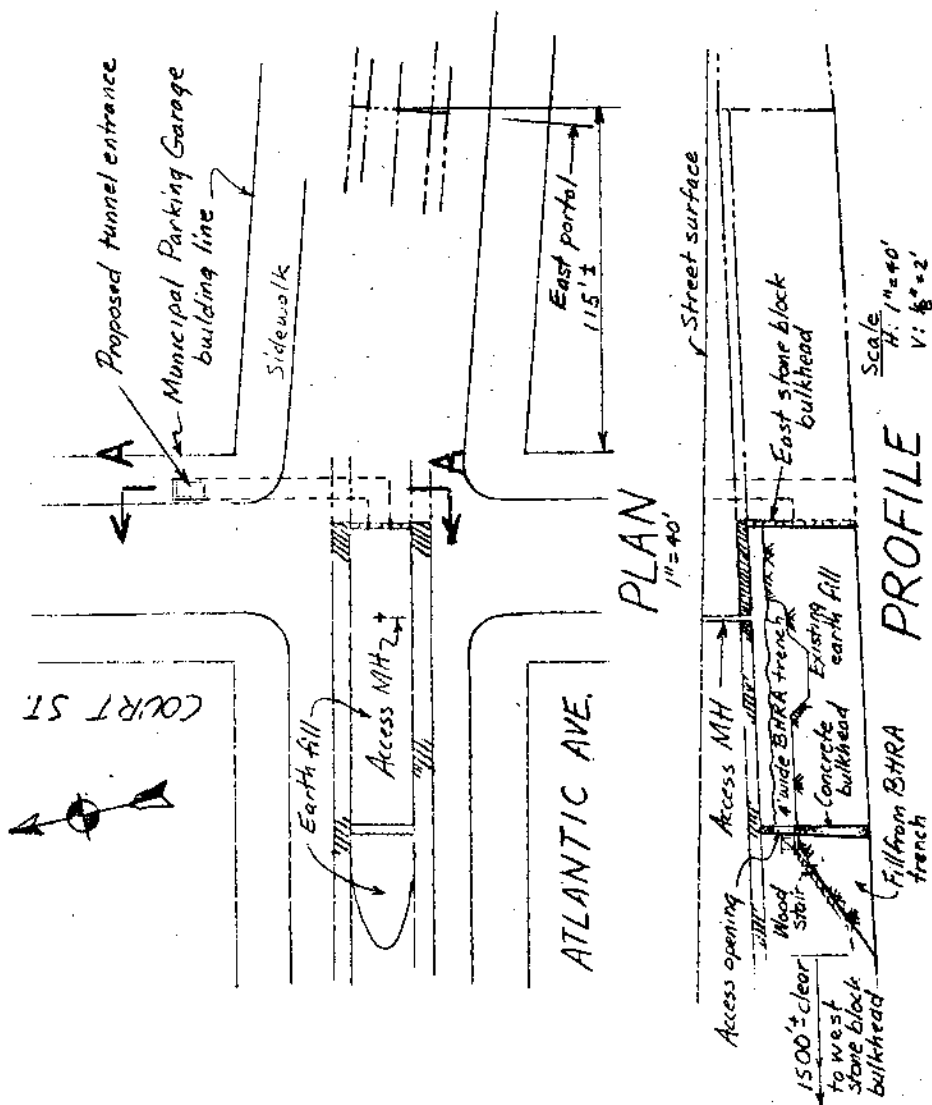 Proposed tunnel entrance
Municipal Parking Garage
building line
Sidewalk
A
A
COURT ST.
Earth fill
Access MH
ATLANTIC AVE.
East portal
115' ±
PLAN
1"=40'
Street surface
East stone block
bulkhead
Access MH
Access opening
4' wide BHRA trench
Existing
earth fill
Concrete
bulkhead
Wood
stair
Fill from BHRA
trench
1500'± clear
to west
stone block
bulkhead
PROFILE
Scale
H: 1"=40'
V: ⅛"=2'